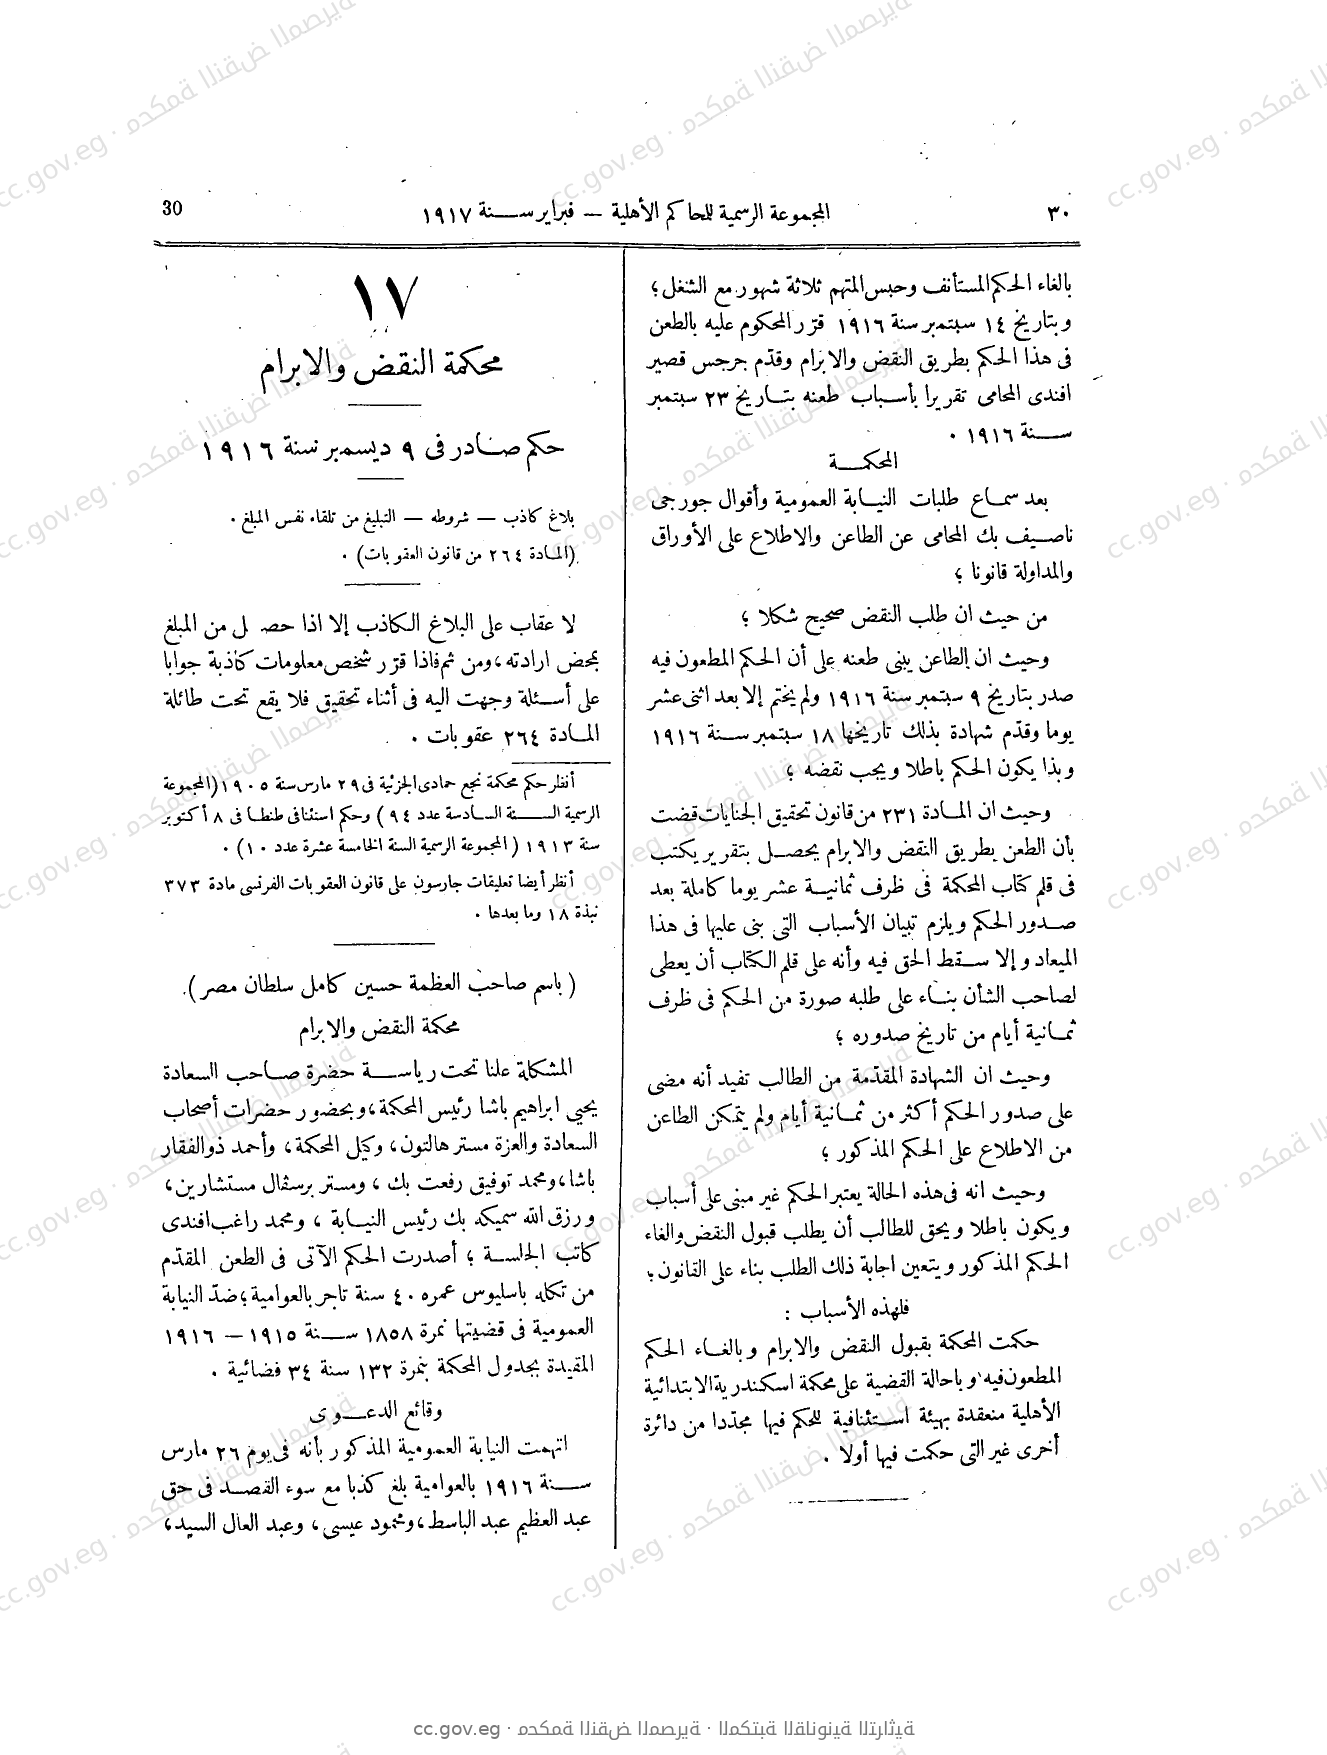 ٣٠
المجموعة الرسمية للمحاكم الأهلية — فبراير سنة ١٩١٧
30
بالغاء الحكم المستأنف وحبس المتهم ثلاثة شهور مع الشغل ؛
وبتاريخ ١٤ سبتمبر سنة ١٩١٦ قرّر المحكوم عليه بالطعن
فى هذا الحكم بطريق النقض والابرام وقدّم جرجس قصير
افندى المحامى تقريرا بأسباب طعنه بتاريخ ٢٣ سبتمبر
سنة ١٩١٦ ٠
المحكمة
بعد سماع طلبات النيابة العمومية وأقوال جورجى
ناصيف بك المحامى عن الطاعن والاطلاع على الأوراق
والمداولة قانونا ؛
من حيث ان طلب النقض صحيح شكلا ؛
وحيث ان الطاعن يبنى طعنه على أن الحكم المطعون فيه
صدر بتاريخ ٩ سبتمبر سنة ١٩١٦ ولم يختم إلا بعد اثنى عشر
يوما وقدّم شهادة بذلك تاريخها ١٨ سبتمبر سنة ١٩١٦
وبذا يكون الحكم باطلا ويجب نقضه ؛
وحيث ان المادة ٢٣١ من قانون تحقيق الجنايات قضت
بأن الطعن بطريق النقض والابرام يحصل بتقرير يكتب
فى قلم كتاب المحكمة فى ظرف ثمانية عشر يوما كاملة بعد
صدور الحكم ويلزم تبيان الأسباب التى بنى عليها فى هذا
الميعاد وإلا سقط الحق فيه وأنه على قلم الكتاب أن يعطى
لصاحب الشأن بناء على طلبه صورة من الحكم فى ظرف
ثمانية أيام من تاريخ صدوره ؛
وحيث ان الشهادة المقدّمة من الطالب تفيد أنه مضى
على صدور الحكم أكثر من ثمانية أيام ولم يتمكن الطاعن
من الاطلاع على الحكم المذكور ؛
وحيث انه فى هذه الحالة يعتبر الحكم غير مبنى على أسباب
ويكون باطلا ويحق للطالب أن يطلب قبول النقض والغاء
الحكم المذكور ويتعين اجابة ذلك الطلب بناء على القانون ؛
فلهذه الأسباب :
حكمت المحكمة بقبول النقض والابرام وبالغاء الحكم
المطعون فيه وباحالة القضية على محكمة اسكندرية الابتدائية
الأهلية منعقدة بهيئة استئنافية للحكم فيها مجدّدا من دائرة
أخرى غير التى حكمت فيها أولا ٠
١٧
محكمة النقض والابرام
حكم صادر فى ٩ ديسمبر سنة ١٩١٦
بلاغ كاذب — شروطه — التبليغ من تلقاء نفس المبلغ ٠
(المادة ٢٦٤ من قانون العقوبات) ٠
لا عقاب على البلاغ الكاذب إلا اذا حصل من المبلغ
بمحض ارادته ، ومن ثم فاذا قرّر شخص معلومات كاذبة جوابا
على أسئلة وجهت اليه فى أثناء تحقيق فلا يقع تحت طائلة
المادة ٢٦٤ عقوبات ٠
أنظر حكم محكمة نجع حمادى الجزئية فى ٢٩ مارس سنة ١٩٠٥ (المجموعة
الرسمية السنة السادسة عدد ٩٤) وحكم استئنافى طنطا فى ٨ أكتوبر
سنة ١٩١٣ (المجموعة الرسمية السنة الخامسة عشرة عدد ١٠) ٠
أنظر أيضا تعليقات جارسون على قانون العقوبات الفرنسى مادة ٣٧٣
نبذة ١٨ وما بعدها ٠
(باسم صاحب العظمة حسين كامل سلطان مصر) ٠
محكمة النقض والابرام
المشكلة علنا تحت رياسة حضرة صاحب السعادة
يحيى ابراهيم باشا رئيس المحكمة ، وبحضور حضرات أصحاب
السعادة والعزة مستر هالتون ، وكيل المحكمة ، وأحمد ذو الفقار
باشا ، ومحمد توفيق رفعت بك ، ومستر برسڤال مستشارين ،
ورزق الله سميكه بك رئيس النيابة ، ومحمد راغب افندى
كاتب الجلسة ؛ أصدرت الحكم الآتى فى الطعن المقدّم
من تكله باسليوس عمره ٤٠ سنة تاجر بالعوامية ؛ ضدّ النيابة
العمومية فى قضيتها نمرة ١٨٥٨ سنة ١٩١٥ — ١٩١٦
المقيدة بجدول المحكمة بنمرة ١٣٢ سنة ٣٤ قضائية ٠
وقائع الدعوى
اتهمت النيابة العمومية المذكور بأنه فى يوم ٢٦ مارس
سنة ١٩١٦ بالعوامية بلغ كذبا مع سوء القصد فى حق
عبد العظيم عبد الباسط ، ومحمود عيسى ، وعبد العال السيد ،
cc.gov.eg · محكمة النقض المصرية · المكتبة القانونية التراثية